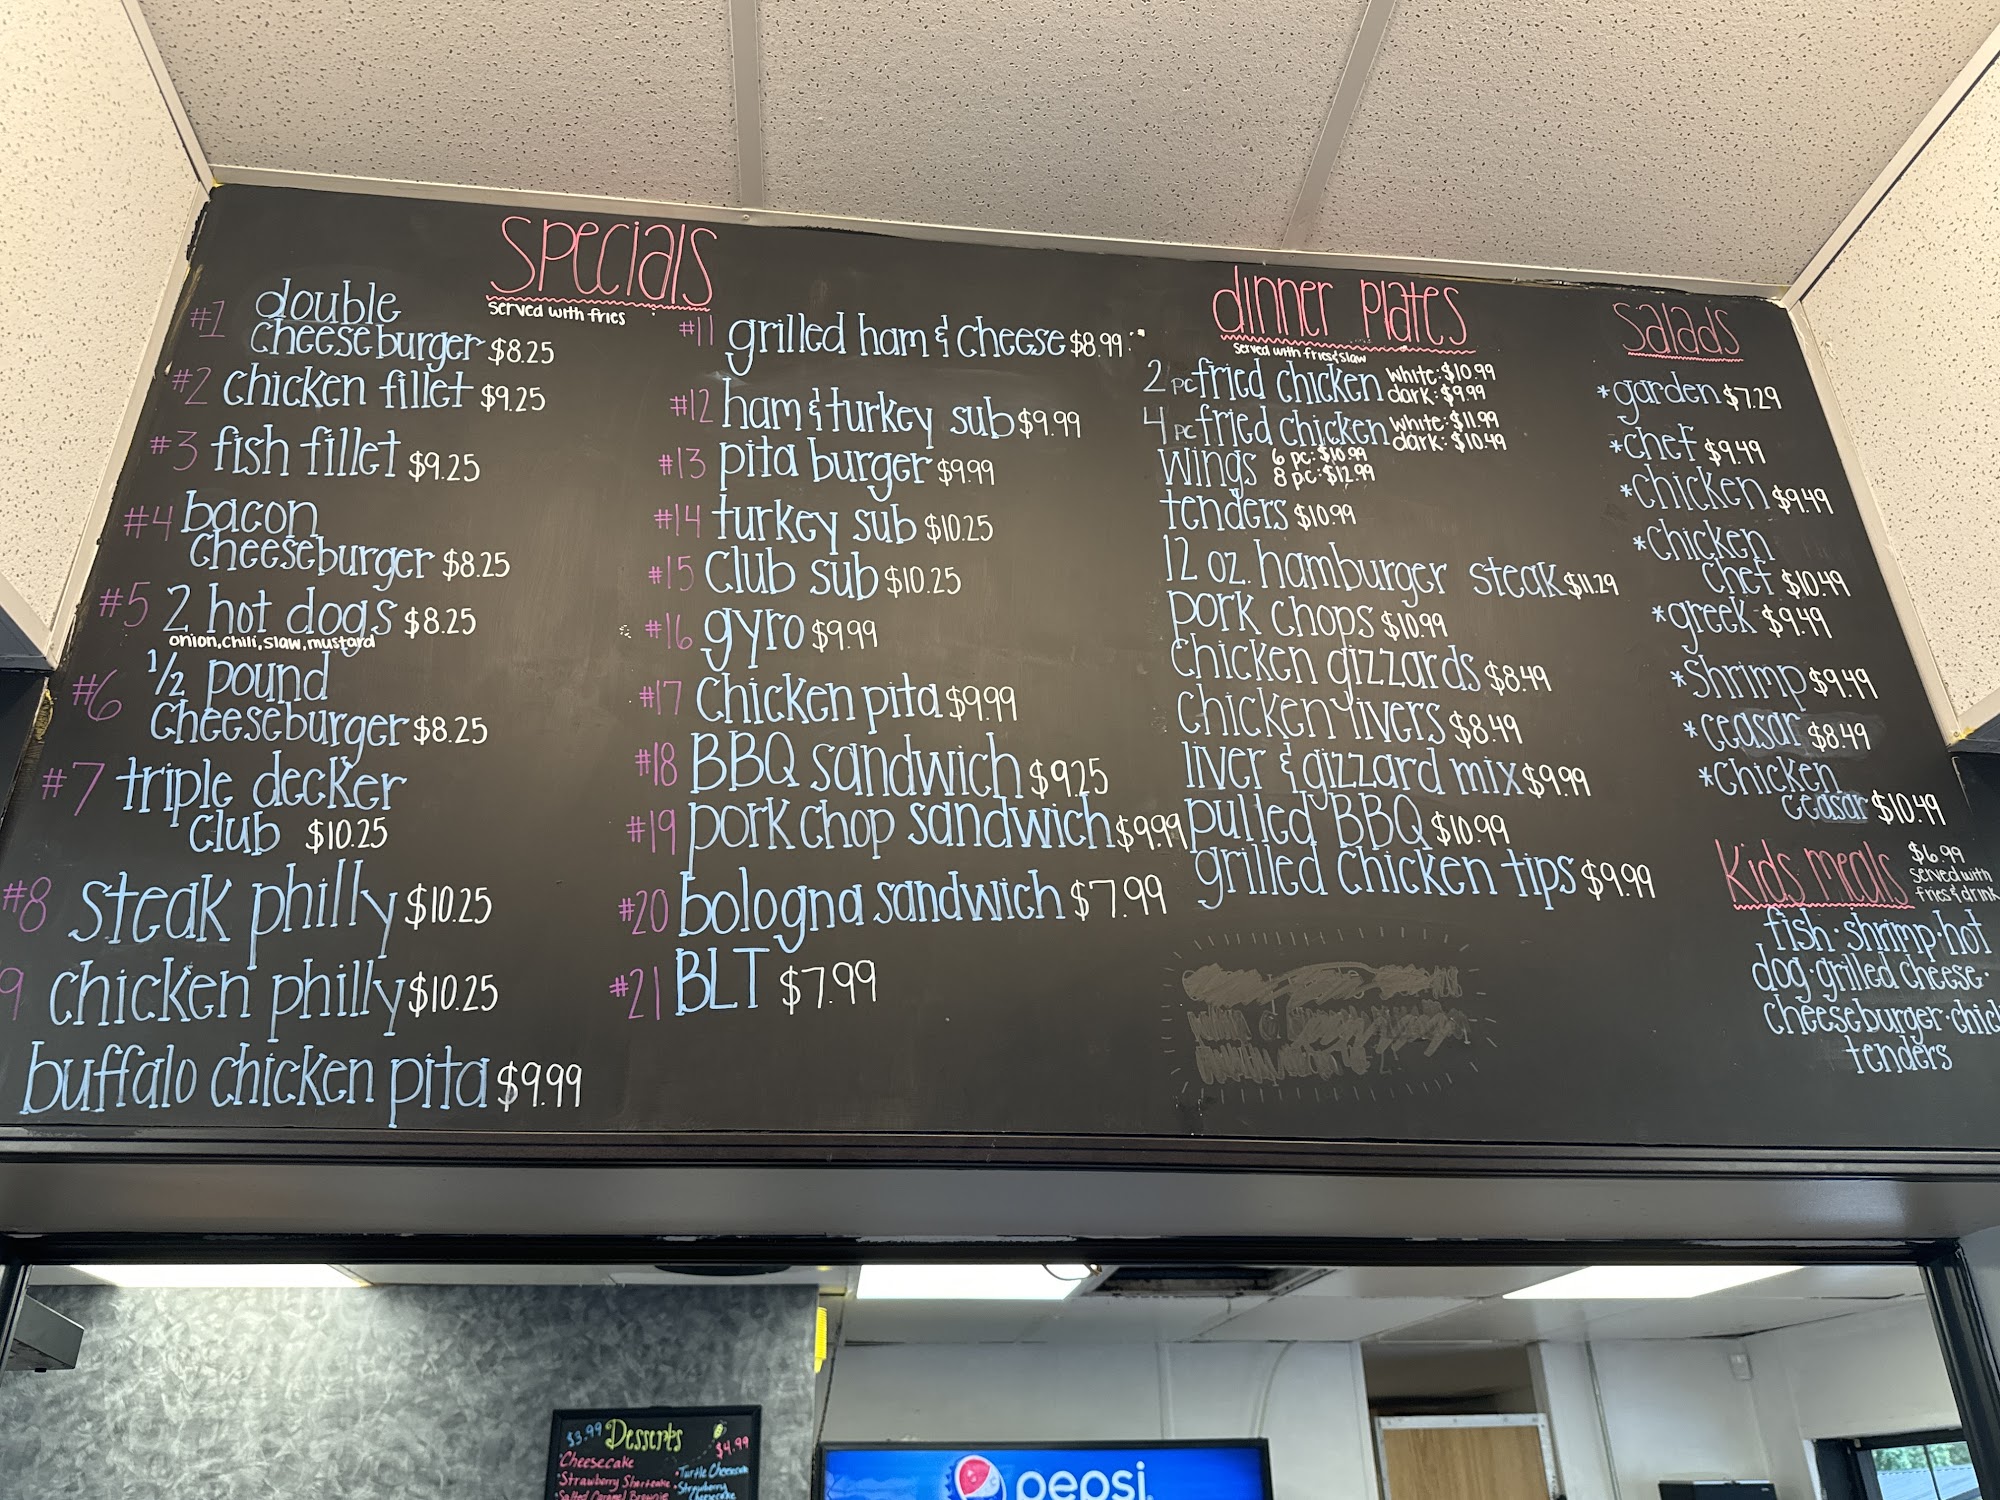 Specials
served with fries
#1 double
cheeseburger $8.25
#2 chicken fillet $9.25
#3 fish fillet $9.25
#4 bacon
cheeseburger $8.25
#5 2 hot dogs $8.25
onion, chili, slaw, mustard
#6 1/2 pound
cheeseburger $8.25
#7 triple decker
club $10.25
#8 steak philly $10.25
9 chicken philly $10.25
buffalo chicken pita $9.99
#11 grilled ham & cheese $8.99
#12 ham & turkey sub $9.99
#13 pita burger $9.99
#14 turkey sub $10.25
#15 club sub $10.25
#16 gyro $9.99
#17 chicken pita $9.99
#18 BBQ sandwich $9.25
#19 pork chop sandwich $9.99
#20 bologna sandwich $7.99
#21 BLT $7.99
dinner plates
served with fries & slaw
2 pc fried chicken white: $10.99
dark: $9.99
4 pc fried chicken white: $11.99
dark: $10.49
wings 6 pc: $10.99
8 pc: $12.99
tenders $10.99
12 oz. hamburger steak $11.29
pork chops $10.99
chicken gizzards $8.49
chicken livers $8.49
liver & gizzard mix $9.99
pulled BBQ $10.99
grilled chicken tips $9.99
Salads
*garden $7.29
*chef $9.49
*chicken $9.49
*chicken
chef $10.49
*greek $9.49
*shrimp $9.49
*ceasar $8.49
*chicken
ceasar $10.49
Kids meals $6.99
served with
fries & drink
fish · shrimp · hot
dog · grilled cheese ·
cheeseburger · chic
tenders
$3.99 Desserts $4.99
Cheesecake
Strawberry Shortcake
Salted Caramel Brownie
Turtle Cheesecake
Strawberry
Cheesecake
pepsi